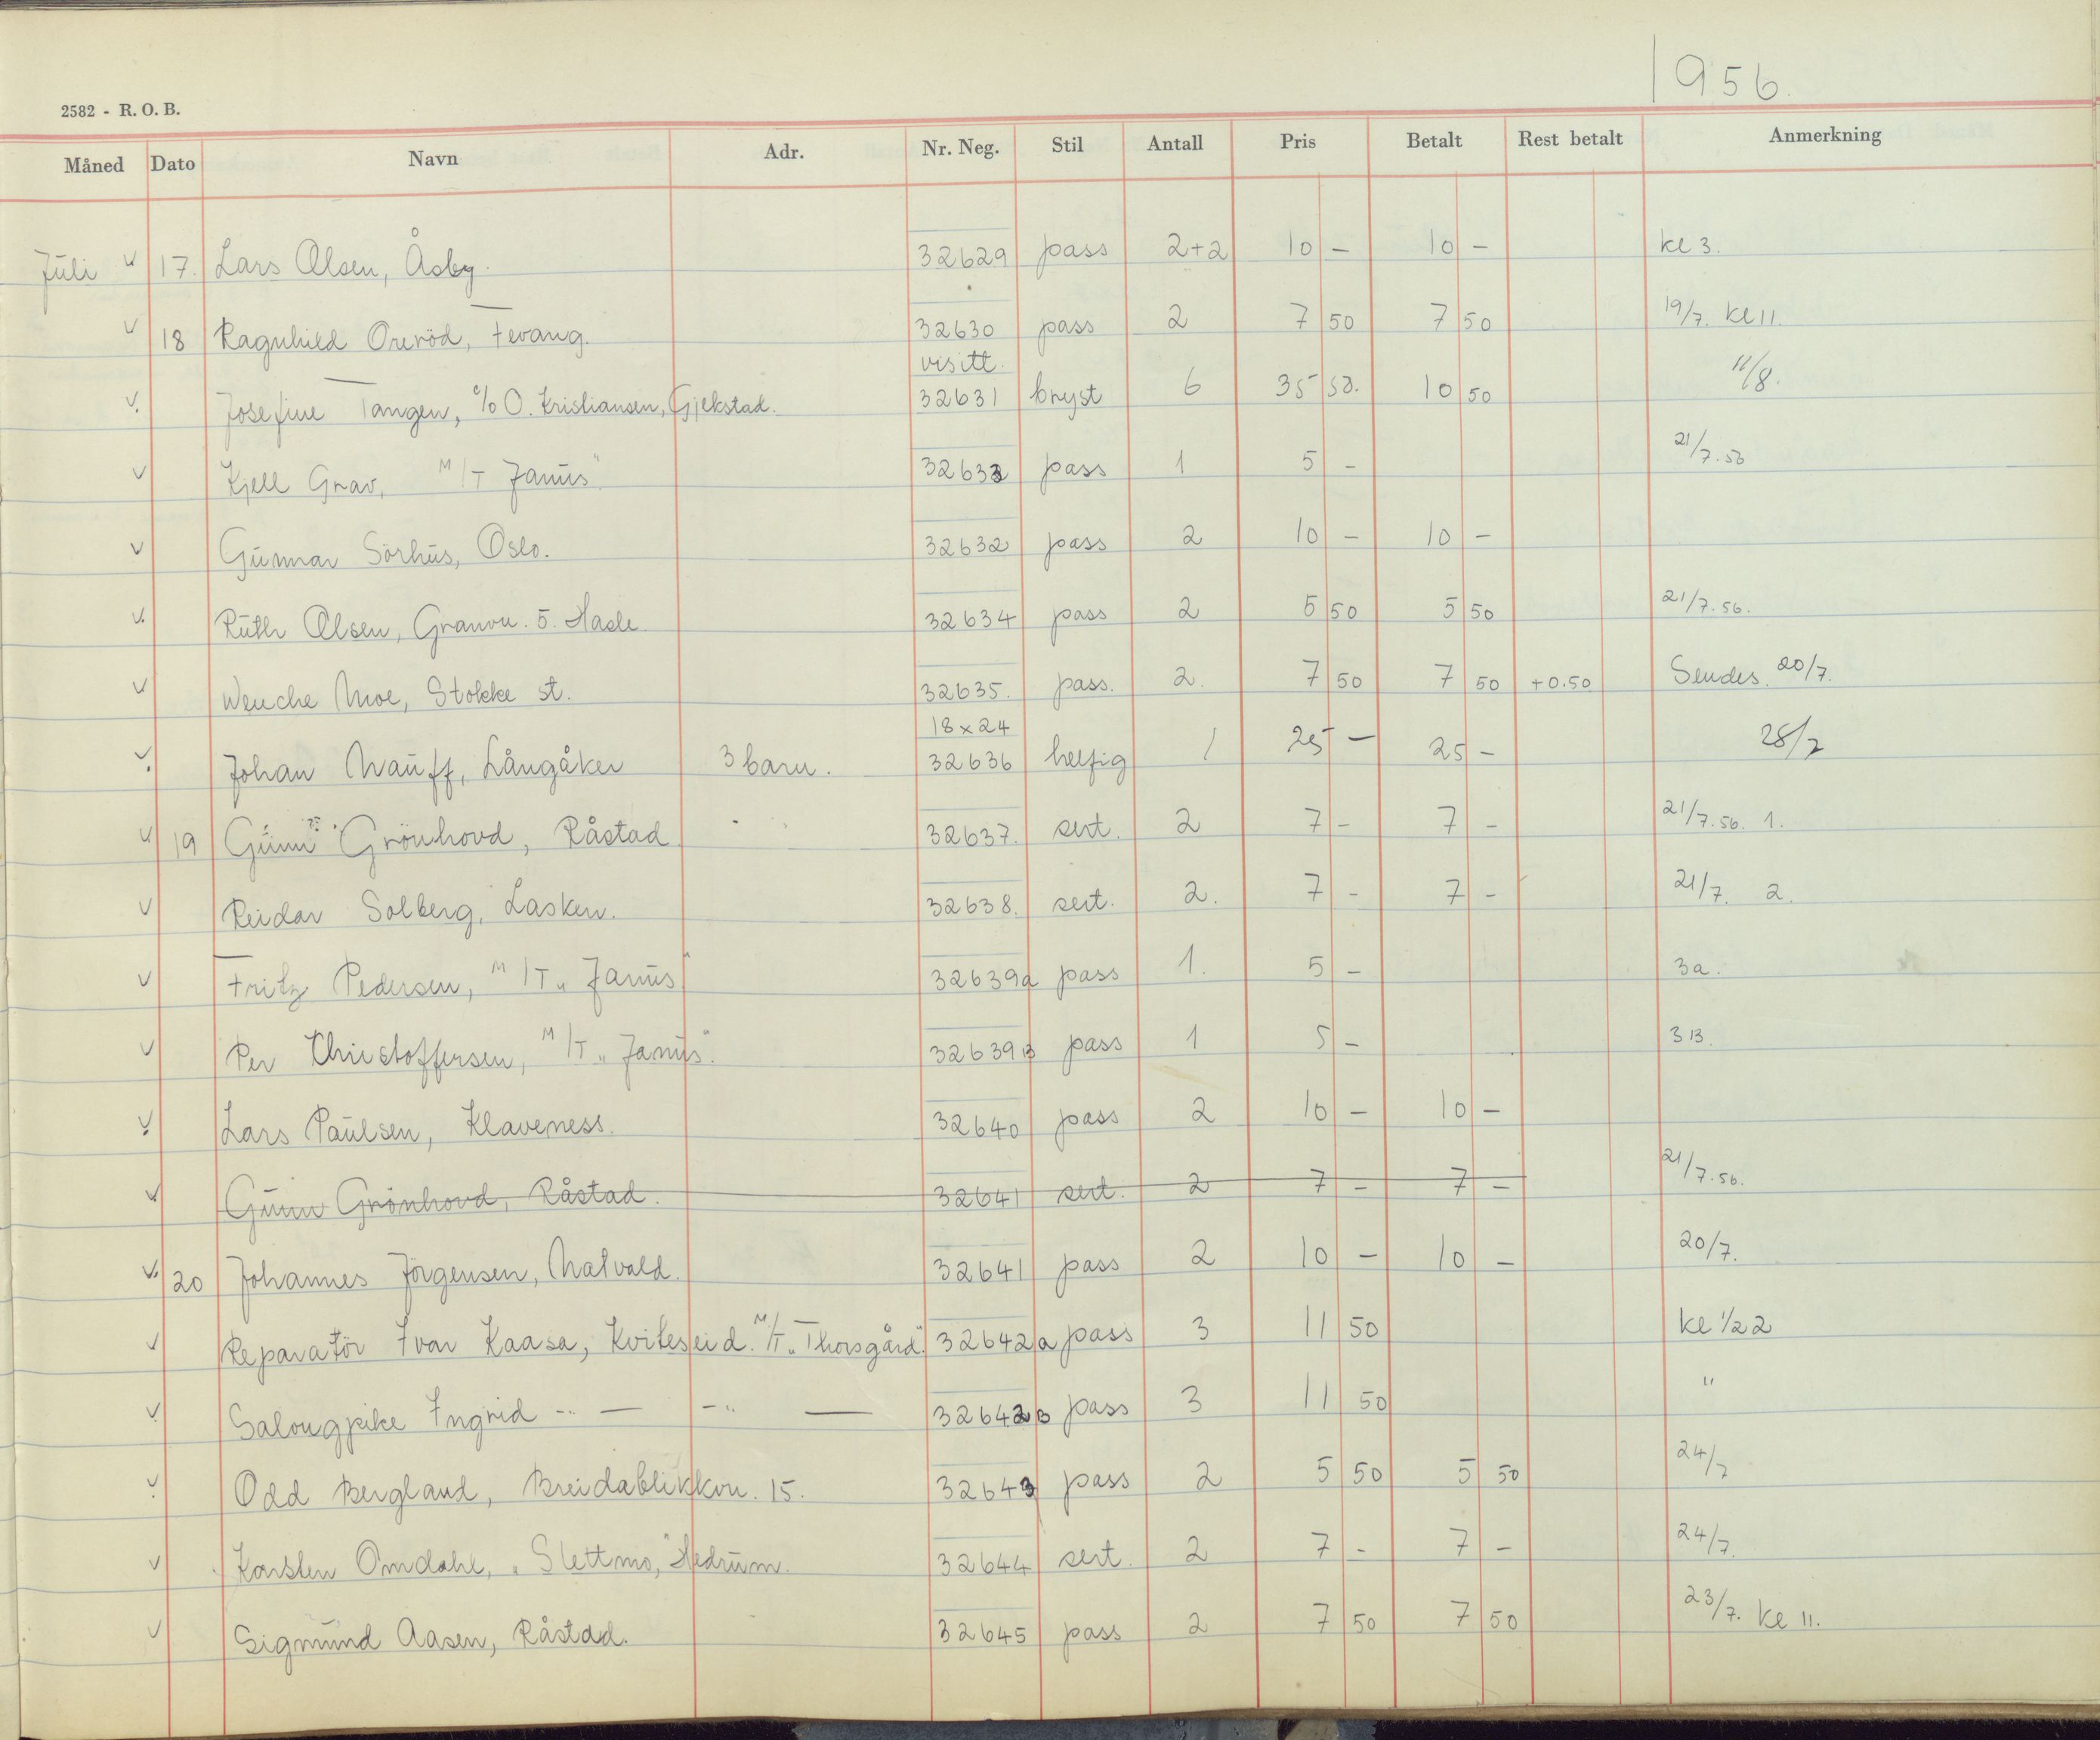 1956.
2582 - R. O. B.
Måned Dato Navn Adr. Nr. Neg. Stil Antall Pris Betalt Rest betalt Anmerkning
Juli v 17. Lars Olsen, Åsby. 32629 pass 2+2 10 - 10 - kl 3.
v 18 Ragnhild Oreröd, Fevang. 32630 pass 2 7 50 7 50 19/7. kl 11.
visitt.
v. Josefine Tangen, c/o O. Kristiansen, Gjekstad. 32631 bryst 6 35 50. 10 50 11/8.
v Kjell Grav, M/T Janus" 32633 pass 1 5 - 21/7.56
v Gunnar Sörhus, Oslo. 32632 pass 2 10 - 10 -
v. Ruth Olsen, Granvn. 5. Hasle 32634 pass 2 5 50 5 50 21/7.56.
v Wenche Moe, Stokke st. 32635. pass. 2. 7 50 7 50 +0.50 Sendes. 20/7.
18x24
v. Johan Mauff, Langåker 3 barn. 32636 helfig 1 25 - 25 - 28/7
v 19 Gunn Grönhovd, Råstad 32637. sert. 2 7 - 7 - 21/7.56. 1.
v Reidar Solberg, Lasken. 32638. sert. 2. 7 - 7 - 21/7. 2.
v Fritz Pedersen, M/T „Janus" 32639a pass 1. 5 - 3a.
v Per Christoffersen, M/T „Janus". 32639B pass 1 5 - 3B.
v. Lars Paulsen, Klaveness. 32640 pass 2 10 - 10 -
v. Gunn Grönhovd, Råstad. 32641 sert. 2 7 - 7 - 21/7.56.
v. 20 Johannes Jörgensen, Natvald. 32641 pass 2 10 - 10 - 20/7.
v Reparatör Ivar Kaasa, Kviteseid. M/T „Thorsgård" 32642a pass 3 11 50 kl 1/2 2
v. Salongpike Ingrid -"- -"- 32642B pass 3 11 50 "
v. Odd Bergland, Breidablikkvn. 15. 32643 pass 2 5 50 5 50 24/7
v Karsten Omdahl, „Slettmo," Hedrum. 32644 sert. 2 7 - 7 - 24/7.
v Sigmund Aasen, Råstad. 32645 pass 2 7 50 7 50 23/7. kl 11.